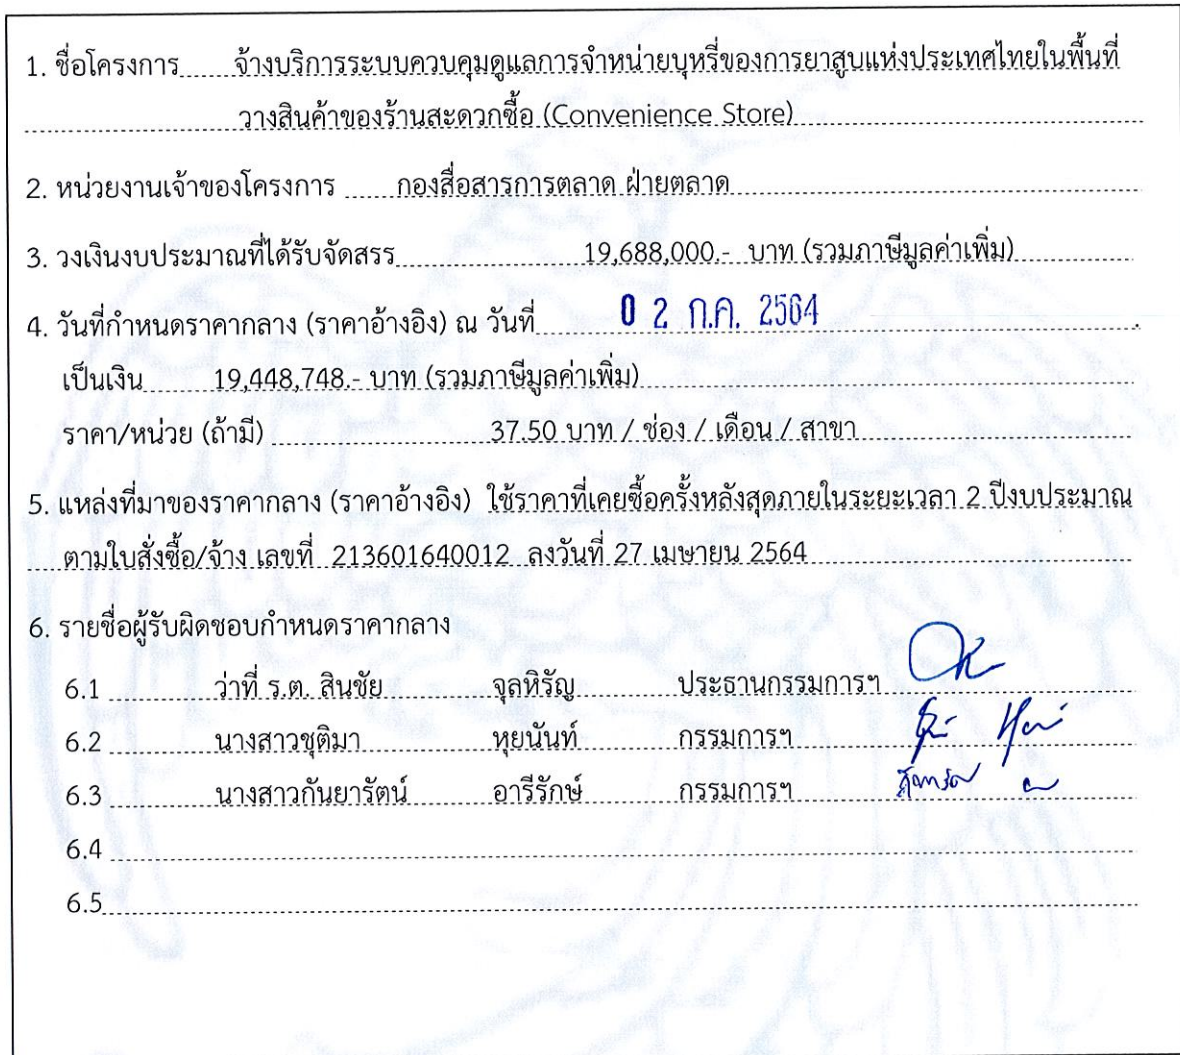 1. ชื่อโครงการ จ้างบริการระบบควบคุมดูแลการจำหน่ายบุหรี่ของการยาสูบแห่งประเทศไทยในพื้นที่
วางสินค้าของร้านสะดวกซื้อ (Convenience Store)
2. หน่วยงานเจ้าของโครงการ กองสื่อสารการตลาด ฝ่ายตลาด
3. วงเงินงบประมาณที่ได้รับจัดสรร 19,688,000.- บาท (รวมภาษีมูลค่าเพิ่ม)
4. วันที่กำหนดราคากลาง (ราคาอ้างอิง) ณ วันที่ 0 2 ก.ค. 2564
เป็นเงิน 19,448,748.- บาท (รวมภาษีมูลค่าเพิ่ม)
ราคา/หน่วย (ถ้ามี) 37.50 บาท / ช่อง / เดือน / สาขา
5. แหล่งที่มาของราคากลาง (ราคาอ้างอิง) ใช้ราคาที่เคยซื้อครั้งหลังสุดภายในระยะเวลา 2 ปีงบประมาณ
ตามใบสั่งซื้อ/จ้าง เลขที่ 213601640012 ลงวันที่ 27 เมษายน 2564
6. รายชื่อผู้รับผิดชอบกำหนดราคากลาง
6.1 ว่าที่ ร.ต. สินชัย จุลหิรัญ ประธานกรรมการฯ
6.2 นางสาวชุติมา หุยนันท์ กรรมการฯ
6.3 นางสาวกันยารัตน์ อารีรักษ์ กรรมการฯ
6.4
6.5